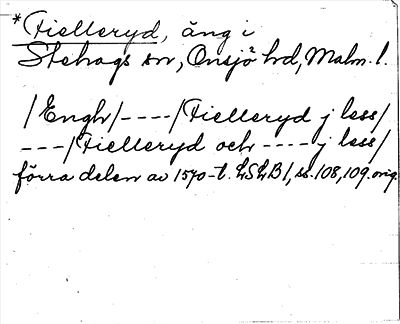 *Fielleryd, äng i
Stehags sn, Onsjö hd, Malm. l.
/Engh/----/Fielleryd j less/
---/Fielleryd och ----j less/
förra delen av 1570-t. LSLB1, ss. 108, 109. orig.